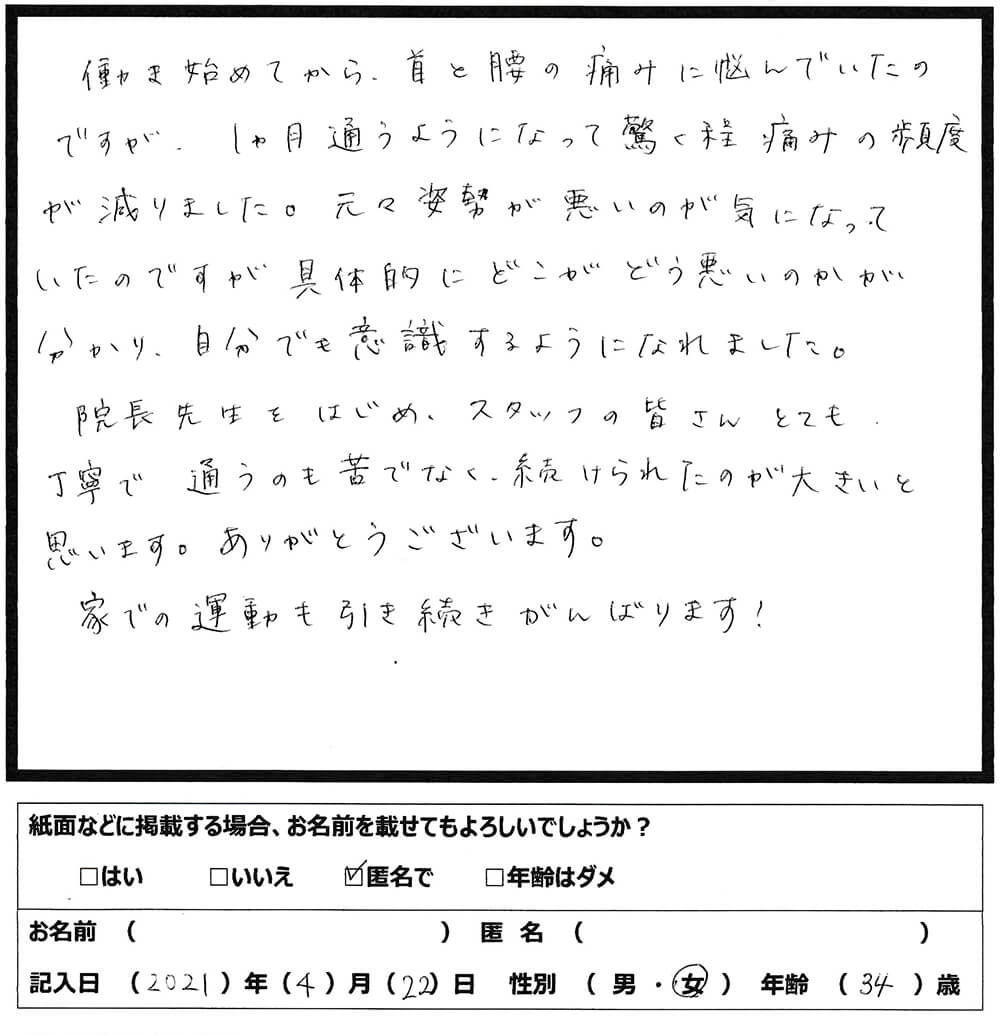 働き始めてから、首と腰の痛みに悩んでいたの
ですが、1ヶ月通うようになって驚く程痛みの頻度
が減りました。元々姿勢が悪いのが気になって
いたのですが具体的にどこがどう悪いのかが
分かり、自分でも意識するようになれました。
院長先生をはじめ、スタッフの皆さんとても
丁寧で通うのも苦でなく、続けられたのが大きいと
思います。ありがとうございます。
家での運動も引き続きがんばります!
紙面などに掲載する場合、お名前を載せてもよろしいでしょうか?
□はい □いいえ ☑匿名で □年齢はダメ
お名前 ( ) 匿名 ( )
記入日 (2021)年(4)月(22)日 性別 (男・女) 年齢 (34)歳